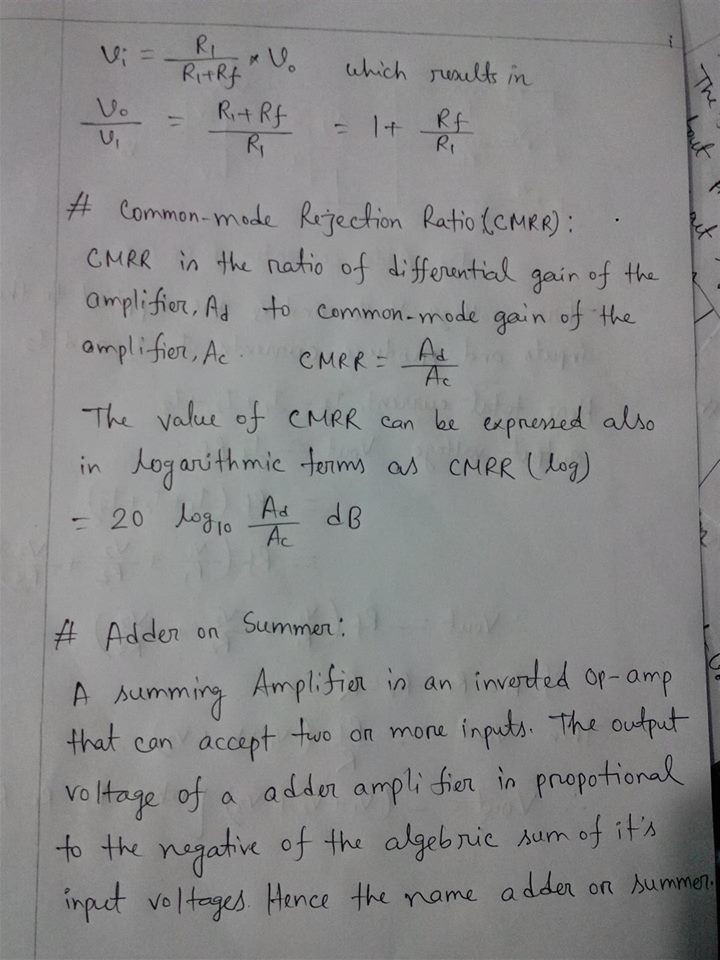 Vi = R1/(R1+Rf) × Vo which results in
Vo/V1 = (R1+Rf)/R1 = 1+ Rf/R1
# Common-mode Rejection Ratio (CMRR):
CMRR is the ratio of differential gain of the
amplifier, Ad to common-mode gain of the
amplifier, Ac. CMRR = Ad/Ac
The value of CMRR can be expressed also
in logarithmic terms as CMRR (log)
= 20 log10 Ad/Ac dB
# Adder or Summer:
A summing Amplifier is an inverted op-amp
that can accept two or more inputs. The output
voltage of a adder amplifier is propotional
to the negative of the algebric sum of it's
input voltages. Hence the name adder or summer.
The